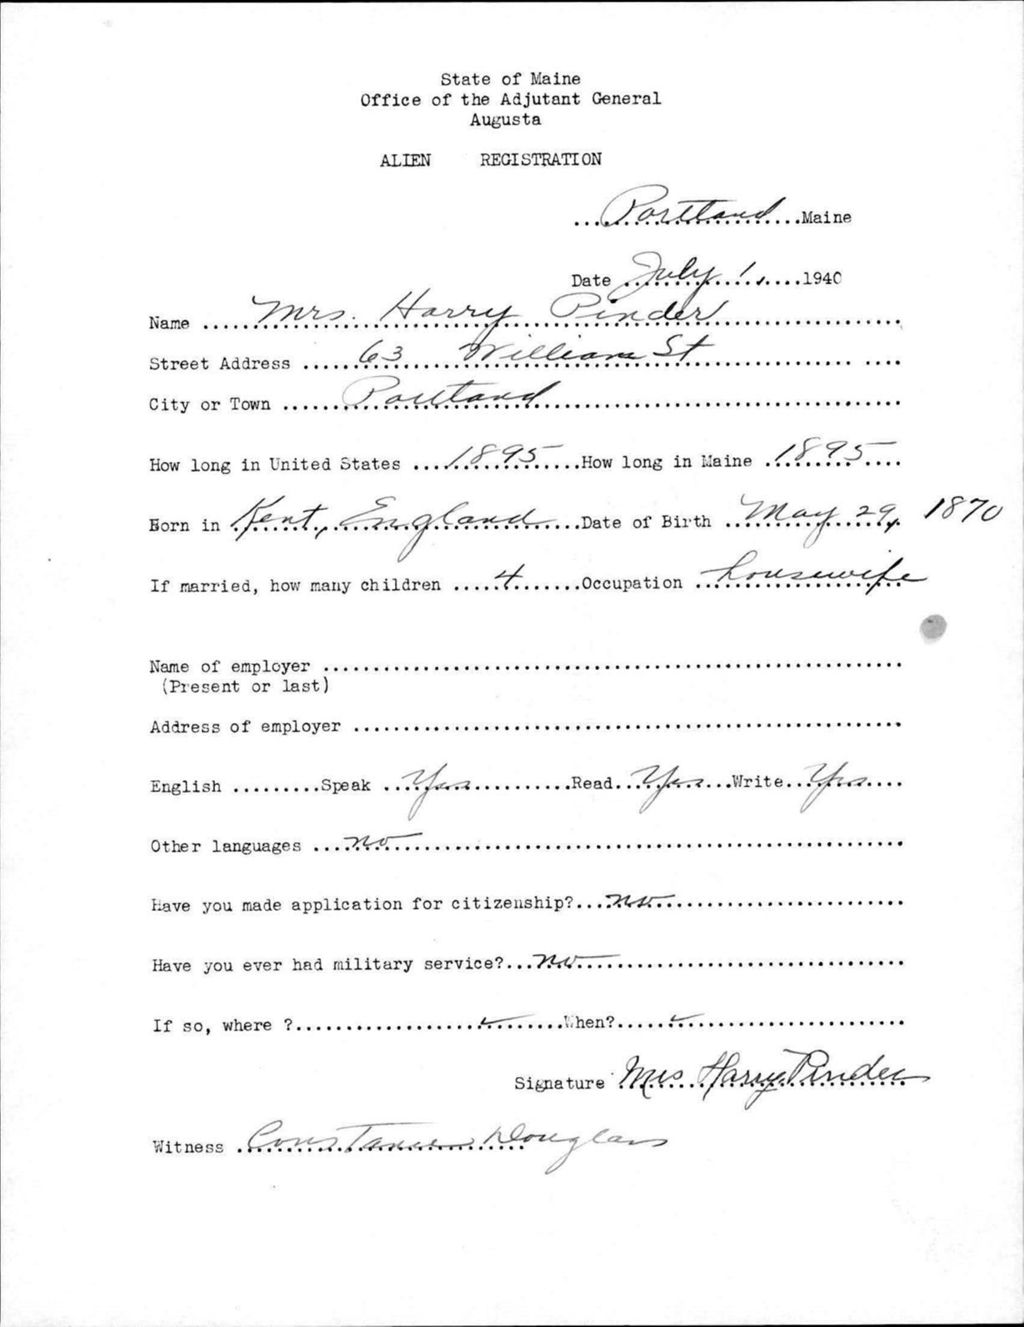 State of Maine
Office of the Adjutant General
Augusta
ALIEN REGISTRATION
...Portland...Maine
Date ...July 1,...1940
Name ...Mrs. Harry Pinder...
Street Address ...63 William St...
City or Town ...Portland...
How long in United States ...1895...How long in Maine ...1895...
Born in Kent, England...Date of Birth ...May 29, 1870
If married, how many children ...4...Occupation ...housewife
Name of employer ...
(Present or last)
Address of employer ...
English ...Speak ...Yes...Read...Yes...Write...Yes...
Other languages ...no...
Have you made application for citizenship?...no...
Have you ever had military service?...no...
If so, where ?...When?...
Signature Mrs. Harry Pinder
Witness ...Constance Douglass